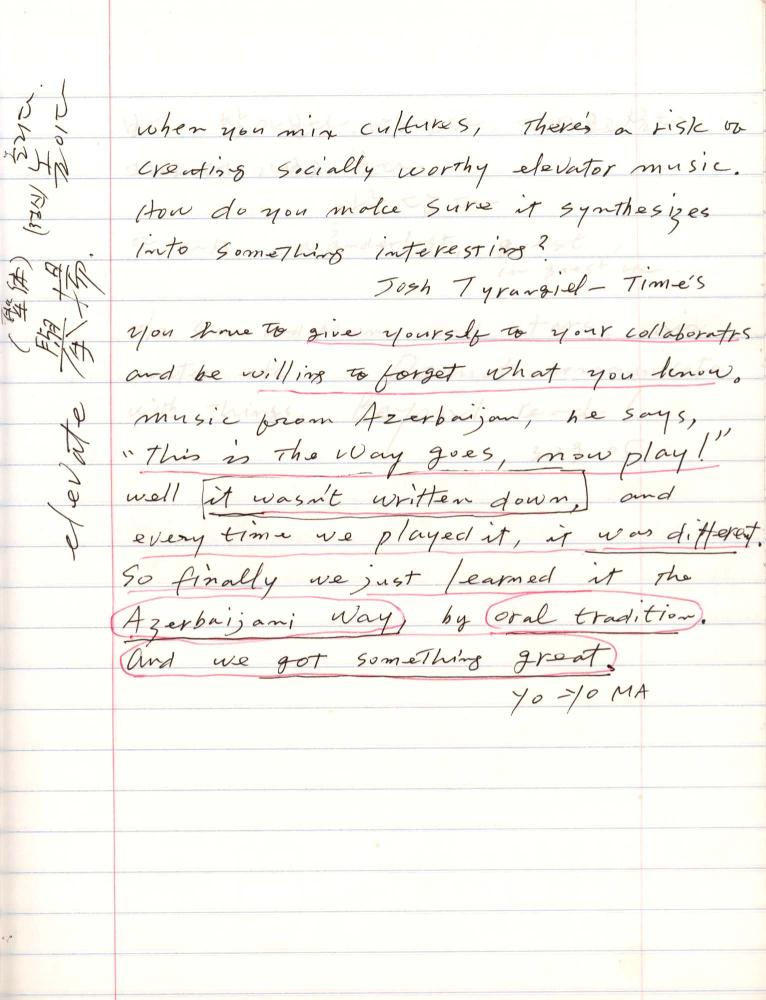 when you mix cultures, There's a risk of
creating socially worthy elevator music.
How do you make sure it synthesizes
into something interesting?
Josh Tyrangiel – Time's
you have to give yourself to your collaboratrs
and be willing to forget what you know.
music from Azerbaijan, he says,
"This is The Way goes, now play!"
well it wasn't written down, and
every time we played it, it was different.
So finally we just learned it the
Azerbaijani Way, by oral tradition.
And we got something great.
YO-YO MA
elevate